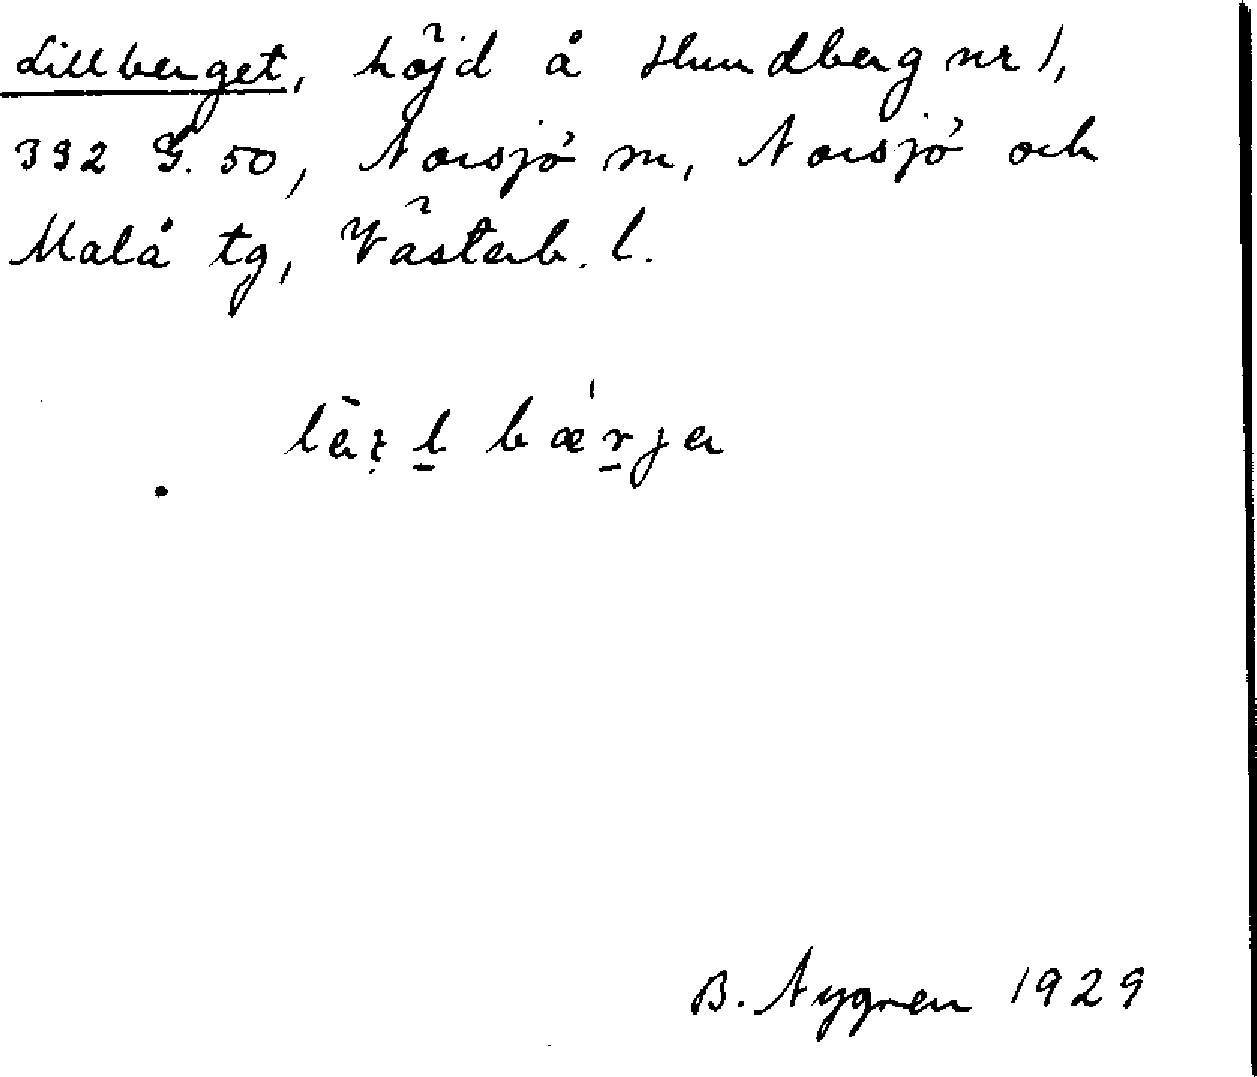 Lillberget, höjd å Hundberg nr 1,
392 G. 50, Norsjö sn, Norsjö och
Malå tg, Västerb. l.
B. Nygren 1929